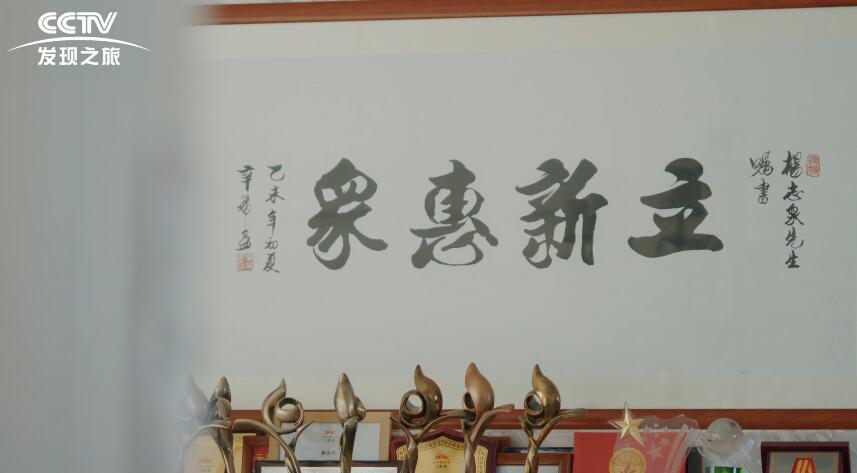 CCTV
发现之旅
楊志泉先生
嘱書
立新惠眾
乙未年初夏